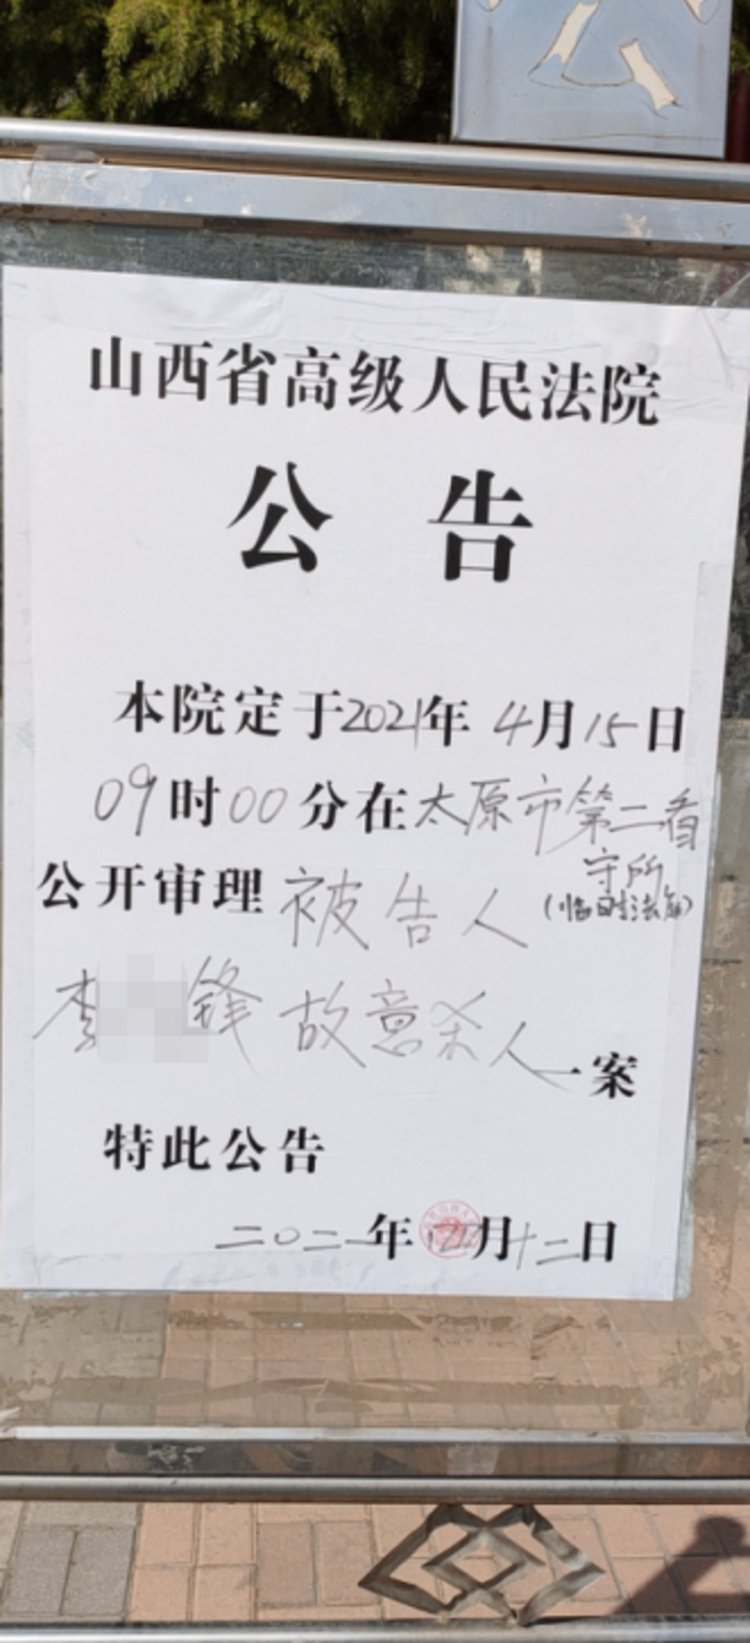 山西省高级人民法院
公告
本院定于2021年4月15日
09时00分在太原市第二看
守所
(临时法庭)
公开审理被告人
李 锋故意杀人一案
特此公告
二〇二一年四月十二日